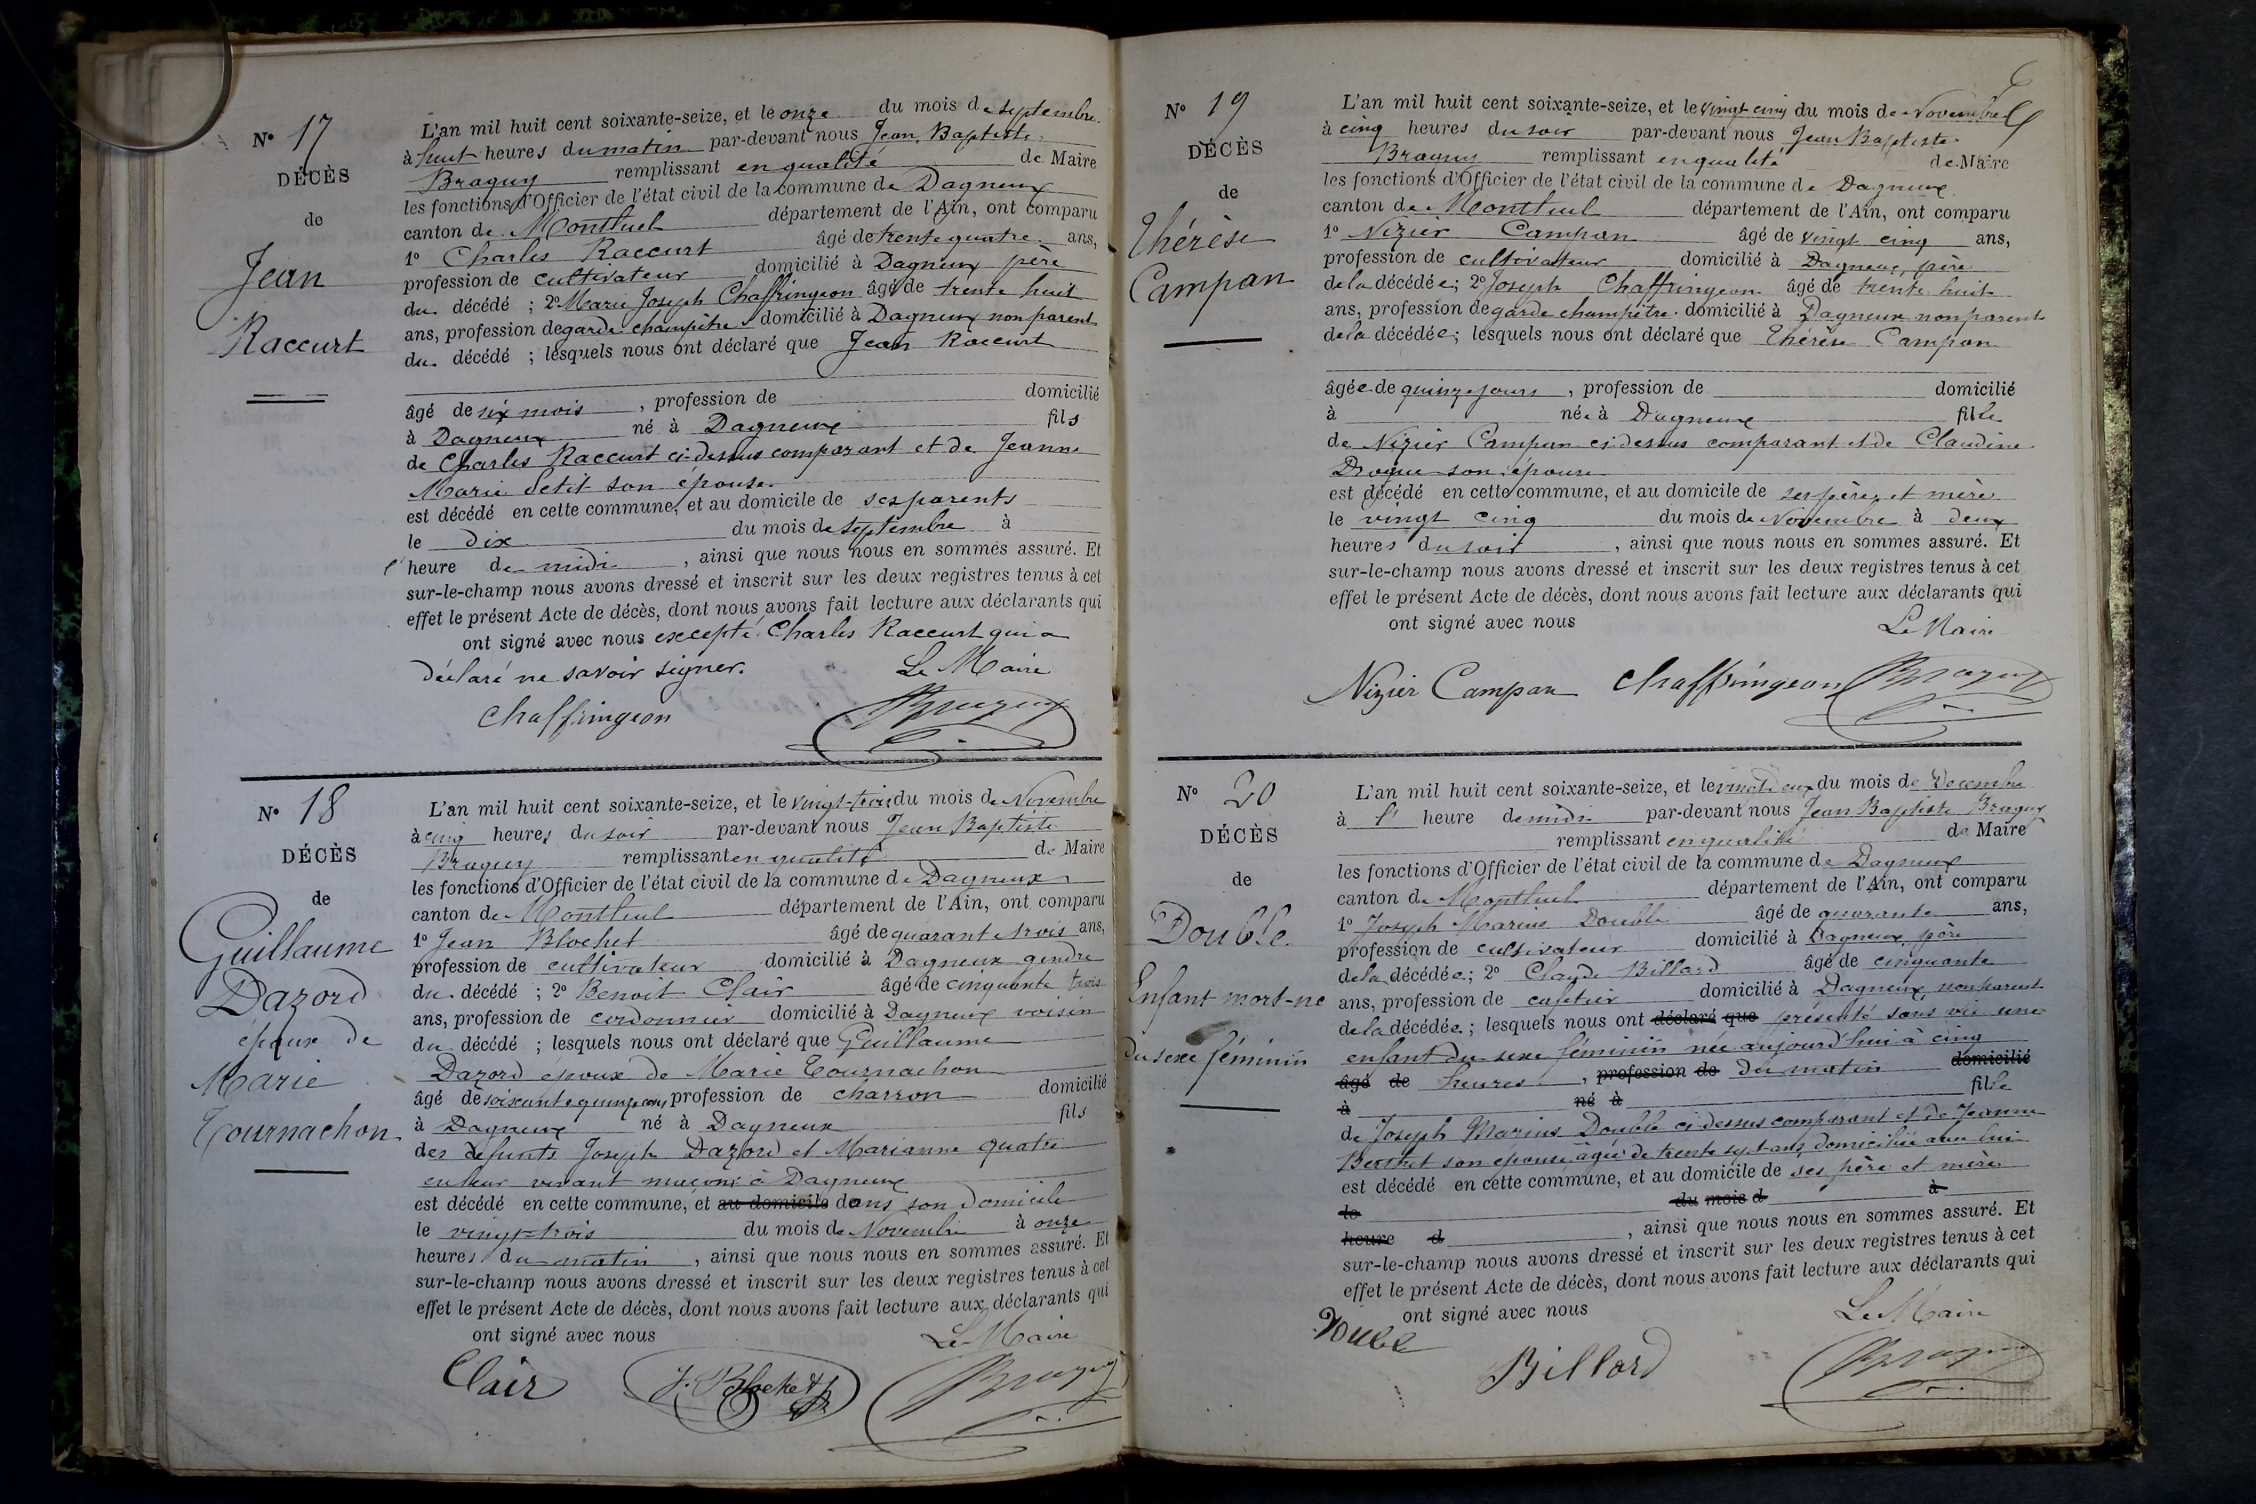 N° 17
DÉCÈS
de
Jean
Raccurt
L'an mil huit cent soixante-seize, et le onze du mois de septembre
à huit heures du matin par-devant nous Jean Baptiste
Braguy remplissant en qualité de Maire
les fonctions d'Officier de l'état civil de la commune de Dagneux
canton de Montluel département de l'Ain, ont comparu
1° Charles Raccurt âgé de trente quatre ans,
profession de cultivateur domicilié à Dagneux père
du décédé ; 2° Marie Joseph Chaffringeon âgé de trente huit
ans, profession de garde champêtre domicilié à Dagneux non parent
du décédé ; lesquels nous ont déclaré que Jean Raccurt
âgé de six mois , profession de domicilié
à Dagneux né à Dagneux fils
de Charles Raccurt ci-dessus comparant et de Jeanne
Marie Petit son épouse
est décédé en cette commune, et au domicile de ses parents
le dix du mois de septembre à
l' heure de midi , ainsi que nous nous en sommes assuré. Et
sur-le-champ nous avons dressé et inscrit sur les deux registres tenus à cet
effet le présent Acte de décès, dont nous avons fait lecture aux déclarants qui
ont signé avec nous excepté Charles Raccurt qui a
déclaré ne savoir signer. Le Maire
Chaffringeon Braguy
N° 18
DÉCÈS
de
Guillaume
Dazord
époux de
Marie
Tournachon
L'an mil huit cent soixante-seize, et le vingt-trois du mois de Novembre
à cinq heures du soir par-devant nous Jean Baptiste
Braguy remplissant en qualité de Maire
les fonctions d'Officier de l'état civil de la commune de Dagneux
canton de Montluel département de l'Ain, ont comparu
1° Jean Blochet âgé de quarante trois ans,
profession de cultivateur domicilié à Dagneux gendre
du décédé ; 2° Benoit Clair âgé de cinquante trois
ans, profession de cordonnier domicilié à Dagneux voisin
du décédé ; lesquels nous ont déclaré que Guillaume
Dazord epoux de Marie Tournachon
âgé de soixante quinze ans profession de charron domicilié
à Dagneux né à Dagneux fils
des défunts Joseph Dazord et Marianne quatre
en leur vivant maçons à Dagneux
est décédé en cette commune, et au domicile dans son domicile
le vingt-trois du mois de Novembre à onze
heures du matin , ainsi que nous nous en sommes assuré. Et
sur-le-champ nous avons dressé et inscrit sur les deux registres tenus à cet
effet le présent Acte de décès, dont nous avons fait lecture aux déclarants qui
ont signé avec nous Le Maire
Clair J. Blochet Braguy
N° 19
DÉCÈS
de
Thérèse
Campan
L'an mil huit cent soixante-seize, et le vingt cinq du mois de Novembre
à cinq heures du soir par-devant nous Jean Baptiste
Braguy remplissant en qualité de Maire
les fonctions d'Officier de l'état civil de la commune de Dagneux
canton de Montluel département de l'Ain, ont comparu
1° Nizier Campan âgé de vingt cinq ans,
profession de cultivateur domicilié à Dagneux, père
de la décédée ; 2° Joseph Chaffringeon âgé de trente huit
ans, profession de garde champêtre domicilié à Dagneux non parent
de la décédée ; lesquels nous ont déclaré que Thérèse Campan
âgée de quinze jours , profession de domicilié
à née à Dagneux fille
de Nizier Campan ci-dessus comparant et de Claudine
son épouse
est décédé en cette commune, et au domicile de ses père et mère
le vingt cinq du mois de Novembre à deux
heures du soir , ainsi que nous nous en sommes assuré. Et
sur-le-champ nous avons dressé et inscrit sur les deux registres tenus à cet
effet le présent Acte de décès, dont nous avons fait lecture aux déclarants qui
ont signé avec nous Le Maire
Nizier Campan Chaffringeon Braguy
N° 20
DÉCÈS
de
Double
Enfant mort-né
du sexe féminin
L'an mil huit cent soixante-seize, et le vingt deux du mois de Decembre
à l' heure de midi par-devant nous Jean Baptiste Braguy
remplissant en qualité de Maire
les fonctions d'Officier de l'état civil de la commune de Dagneux
canton de Montluel département de l'Ain, ont comparu
1° Joseph Marius Double âgé de quarante ans,
profession de cultivateur domicilié à Dagneux père
de la décédée ; 2° Claude Billard âgé de cinquante
ans, profession de cafetier domicilié à Dagneux, non parent
de la décédée ; lesquels nous ont déclaré que présenté sans vie une
enfant du sexe féminin née aujourd'hui à cinq
âgé de heures , profession de du matin domicilié
à né à fille
de Joseph Marius Double ci-dessus comparant et de Jeanne
Berthet son epouse âgée de trente sept ans domiciliée avec lui
est décédé en cette commune, et au domicile de ses père et mère
le du mois d à
heure d , ainsi que nous nous en sommes assuré. Et
sur-le-champ nous avons dressé et inscrit sur les deux registres tenus à cet
effet le présent Acte de décès, dont nous avons fait lecture aux déclarants qui
ont signé avec nous Le Maire
Double Billard Braguy